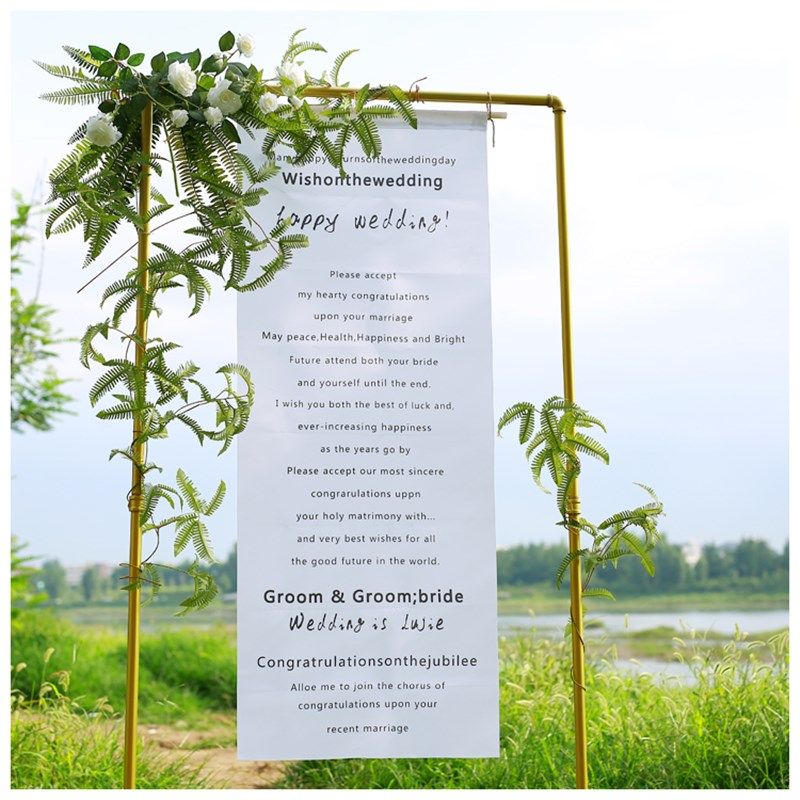 Many happy returnsoftheweddingday
Wishonthewedding
happy wedding!
Please accept
my hearty congratulations
upon your marriage
May peace,Health,Happiness and Bright
Future attend both your bride
and yourself until the end.
I wish you both the best of luck and,
ever-increasing happiness
as the years go by
Please accept our most sincere
congrarulations uppn
your holy matrimony with...
and very best wishes for all
the good future in the world.
Groom & Groom;bride
Wedding is
Congratrulationsonthejubilee
Alloe me to join the chorus of
congratulations upon your
recent marriage